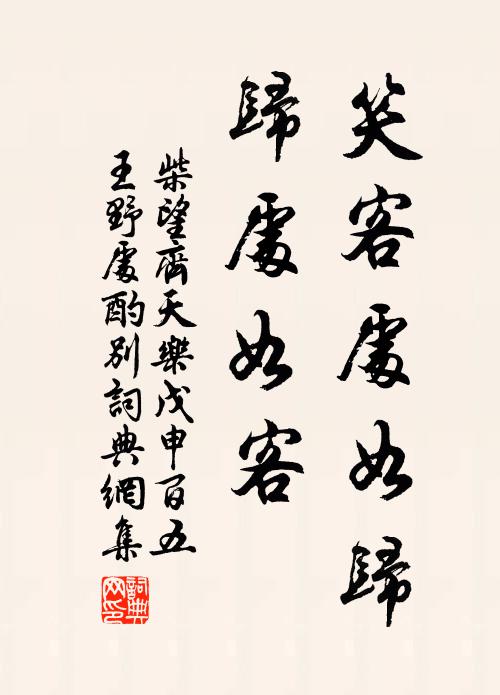 笑客處如歸
歸處如客
柴望齊天樂戊申百五
王野處酌別詞典網集
詞典网印